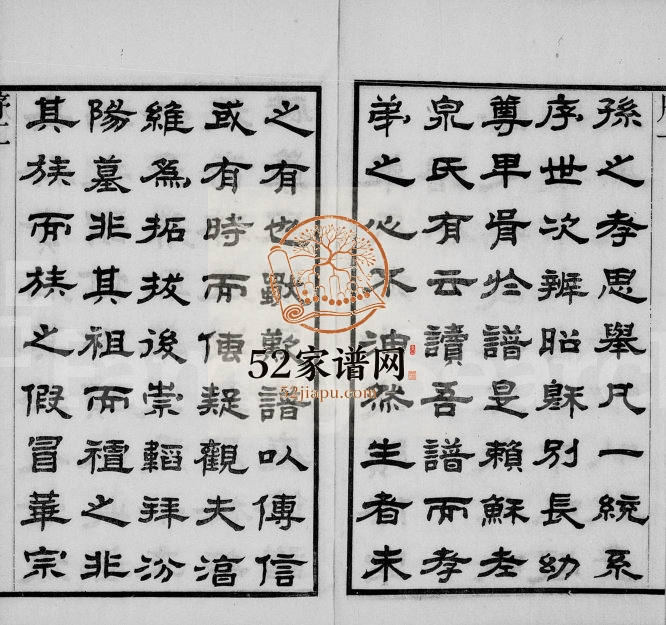 孫之孝思舉凡一統系
序世次辨昭穆別長幼
尊卑胥於譜是賴蘇老
泉氏有云讀吾譜而孝
弟之心不油然生者未
之有也譜以傳信
或有時而傳疑觀夫
維為拓拔後崇韜拜汾
陽墓非其祖而之非
其族而族之假冒華宗
序二
52家谱网
52jiapu.com